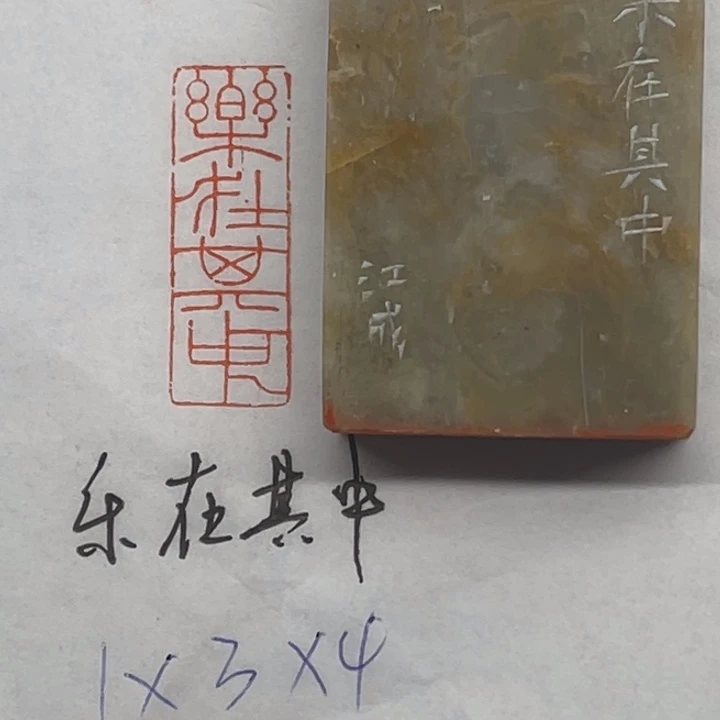 樂在其中
乐在其中
江成
乐在其中
1×3×4